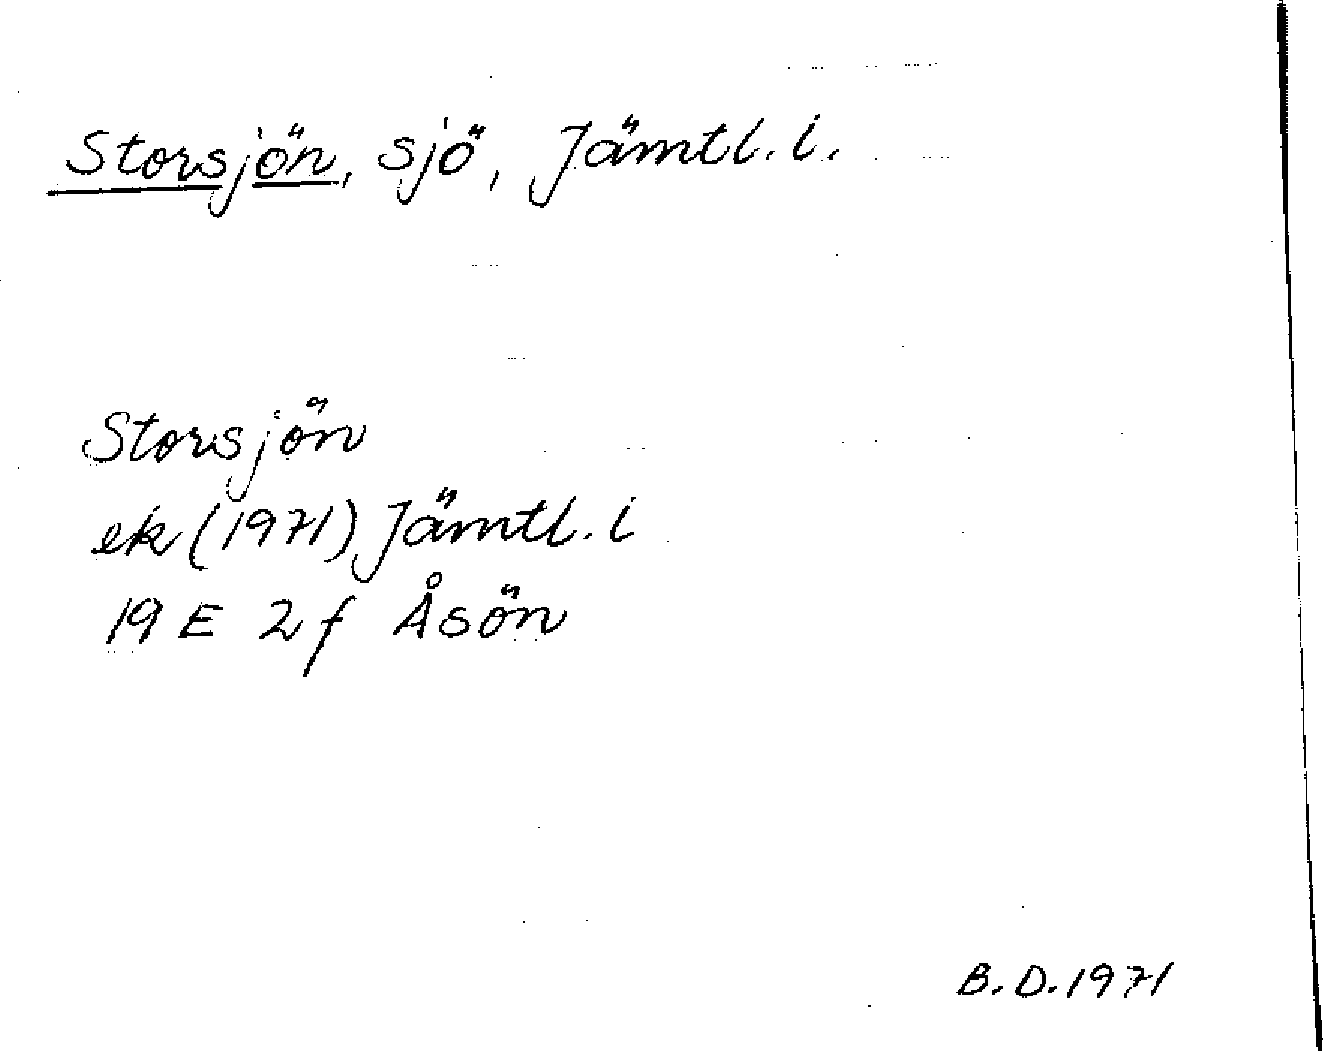 Storsjön, sjö, Jämtl. l.
Storsjön
ek (1971) Jämtl. l
19 E 2 f Åsön
B. D. 1971